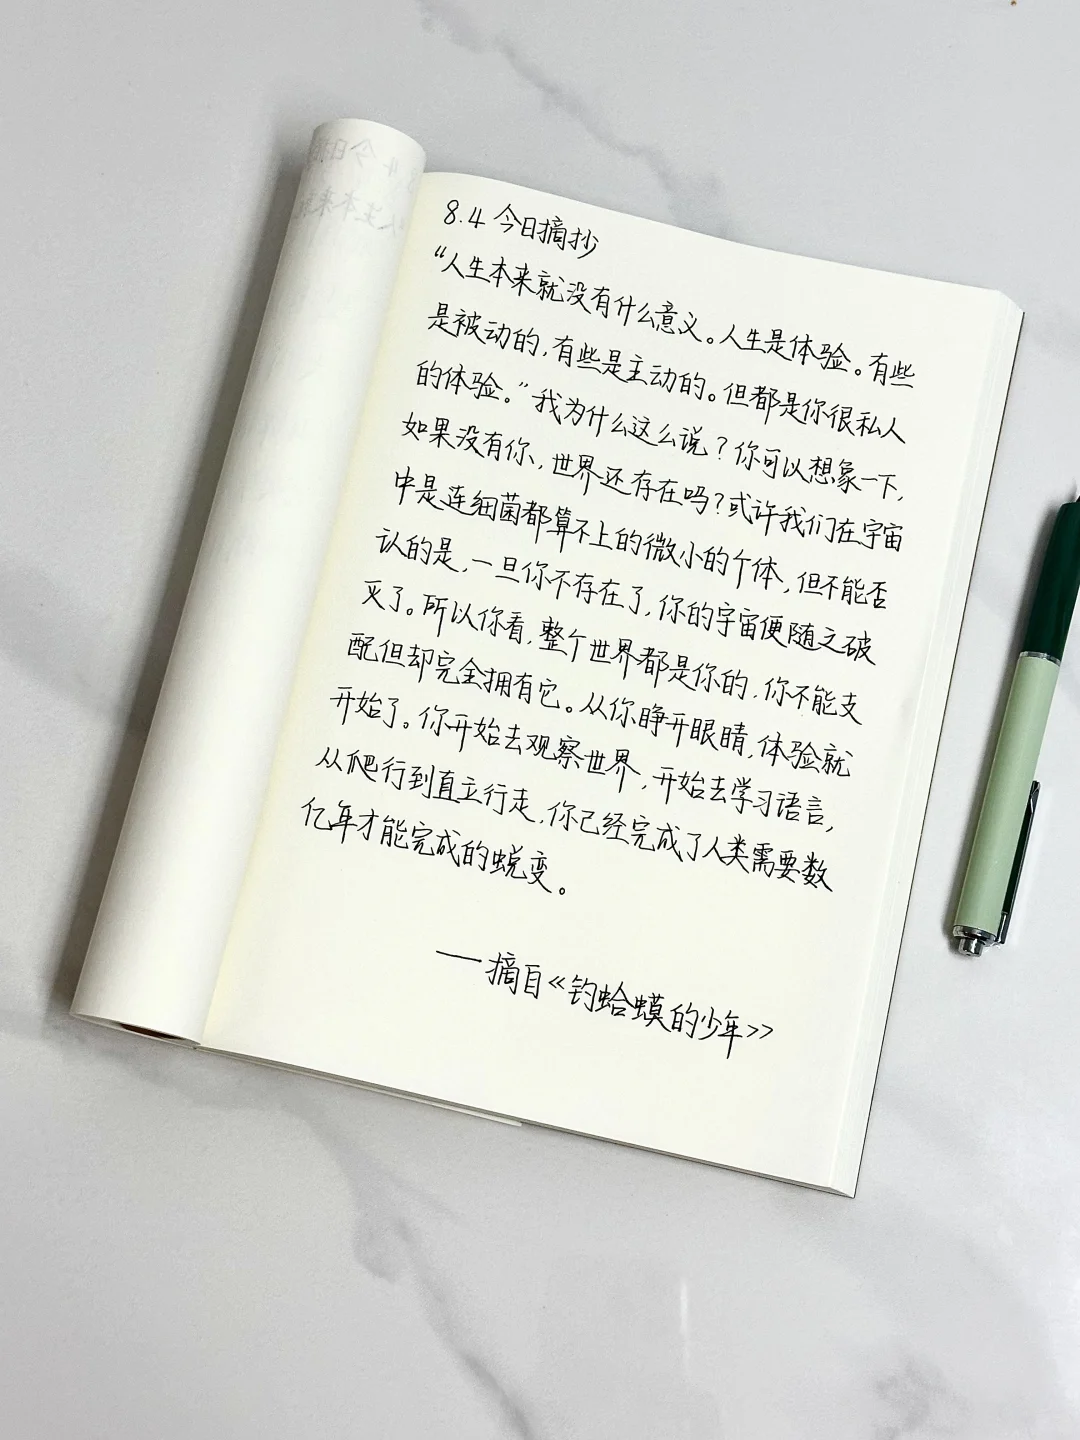 8.4 今日摘抄
“人生本来就没有什么意义。人生是体验。有些
是被动的，有些是主动的。但都是你很私人
的体验。”我为什么这么说？你可以想象一下，
如果没有你、世界还存在吗？或许我们在宇宙
中是连细菌都算不上的微小的个体，但不能否
认的是，一旦你不存在了，你的宇宙便随之破
灭了。所以你看，整个世界都是你的，你不能支
配但却完全拥有它。从你睁开眼睛，体验就
开始了。你开始去观察世界，开始去学习语言，
从爬行到直立行走，你已经完成了人类需要数
亿年才能完成的蜕变。
——摘自《钓蛤蟆的少年》